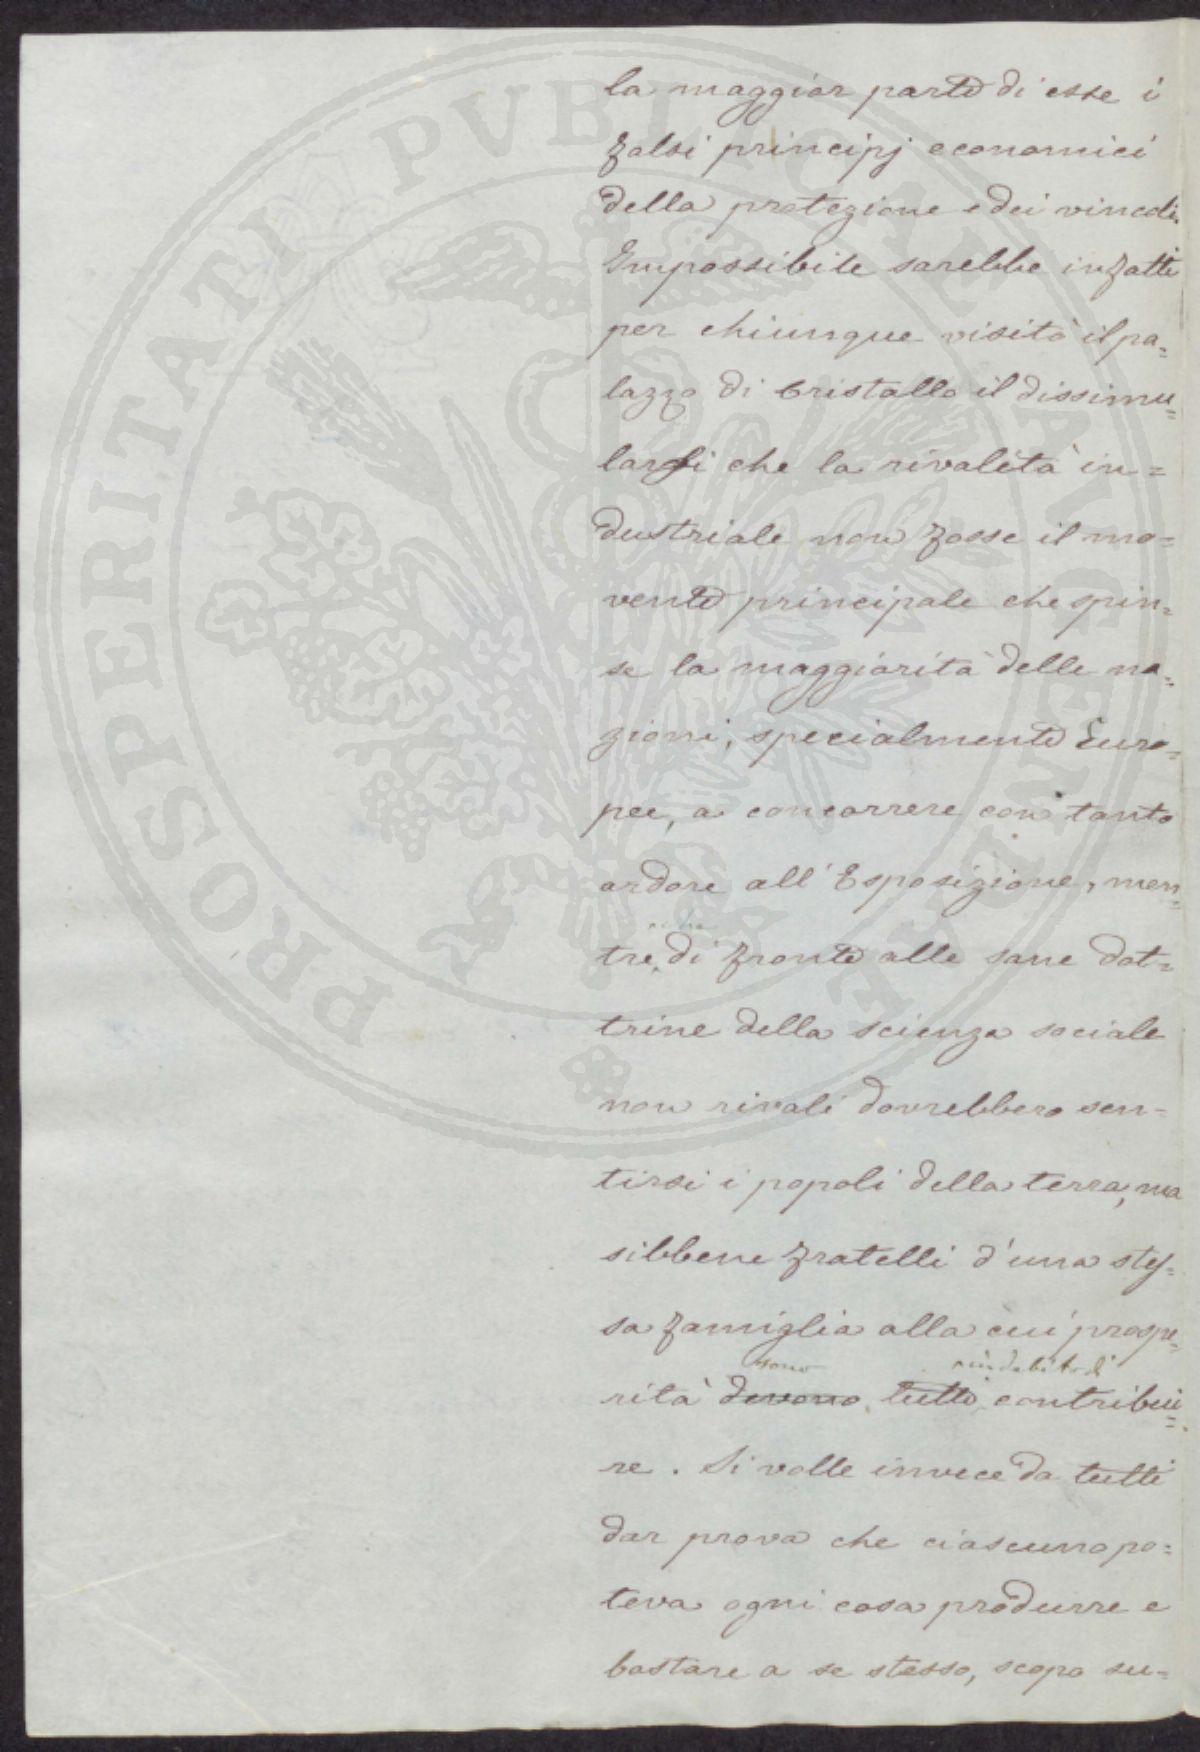 la maggior parte di esse i
falsi principj economici
della protezione e dei vincoli.
Impossibile sarebbe infatti
per chiunque visitò il pa=
lazzo di Cristallo il dissimu=
larsi che la rivalità in=
dustriale non fosse il mo=
vente principale che spin=
se la maggiorità delle na=
zioni, specialmente Euro=
pee, a concorrere con tanto
ardore all'Esposizione, men=
tre, di fronte alle sane dot=
trine della scienza sociale
non rivali dovrebbero sen=
tirsi i popoli della terra, ma
sibbene fratelli d'una stes=
sa famiglia alla cui prospe=
sono in debito di
rità devono tutti contribui=
re. Si volle invece da tutti
dar prova che ciascuno po=
teva ogni cosa produrre e
bastare a se stesso, scopo su=
PROSPERITATI PVBLICAE AVGENDAE